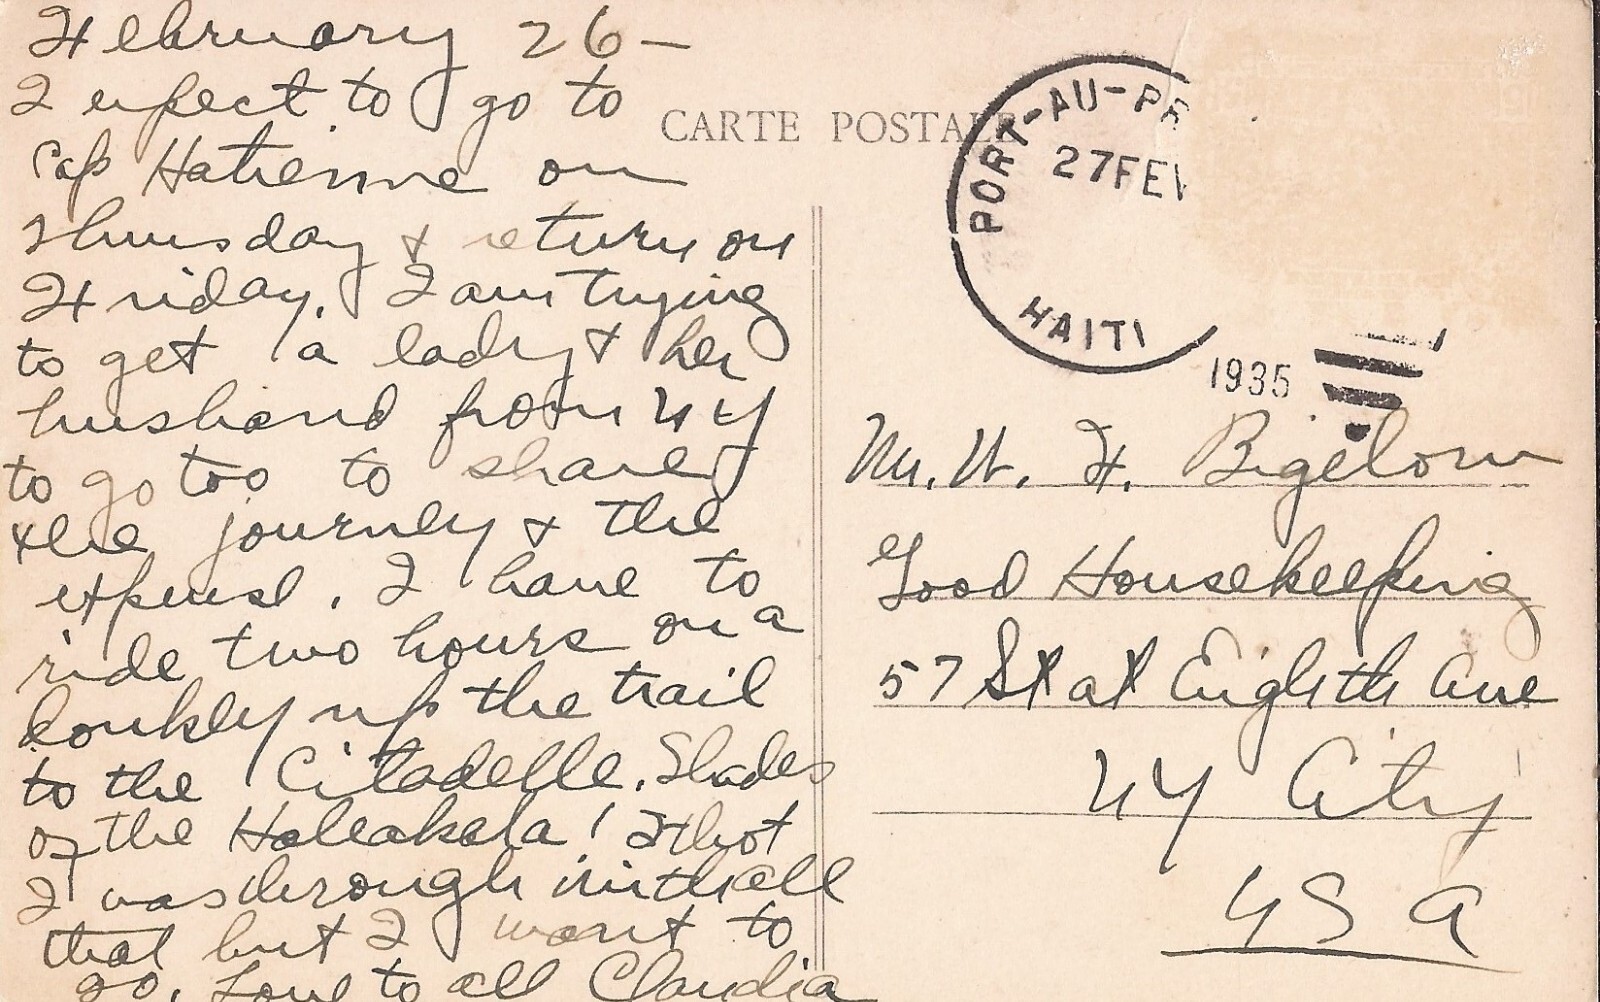 February 26-
I expect to go to
Cap Hatienne on
Thursday & return on
Friday. I am trying
to get a lady & her
husband from NY
to go too to share
the journey & the
expense. I have to
ride two hours on a
donkey up the trail
to the Citadelle. Shades
of the Haleakala! I thot
I was through with all
that but I want to
go. Love to all Claudia
CARTE POSTALE
PORT-AU-PR
27 FEV
HAITI
1935
Mr. W. F. Bigelow
Good Housekeeping
57 St at Eighth Ave
NY City
USA